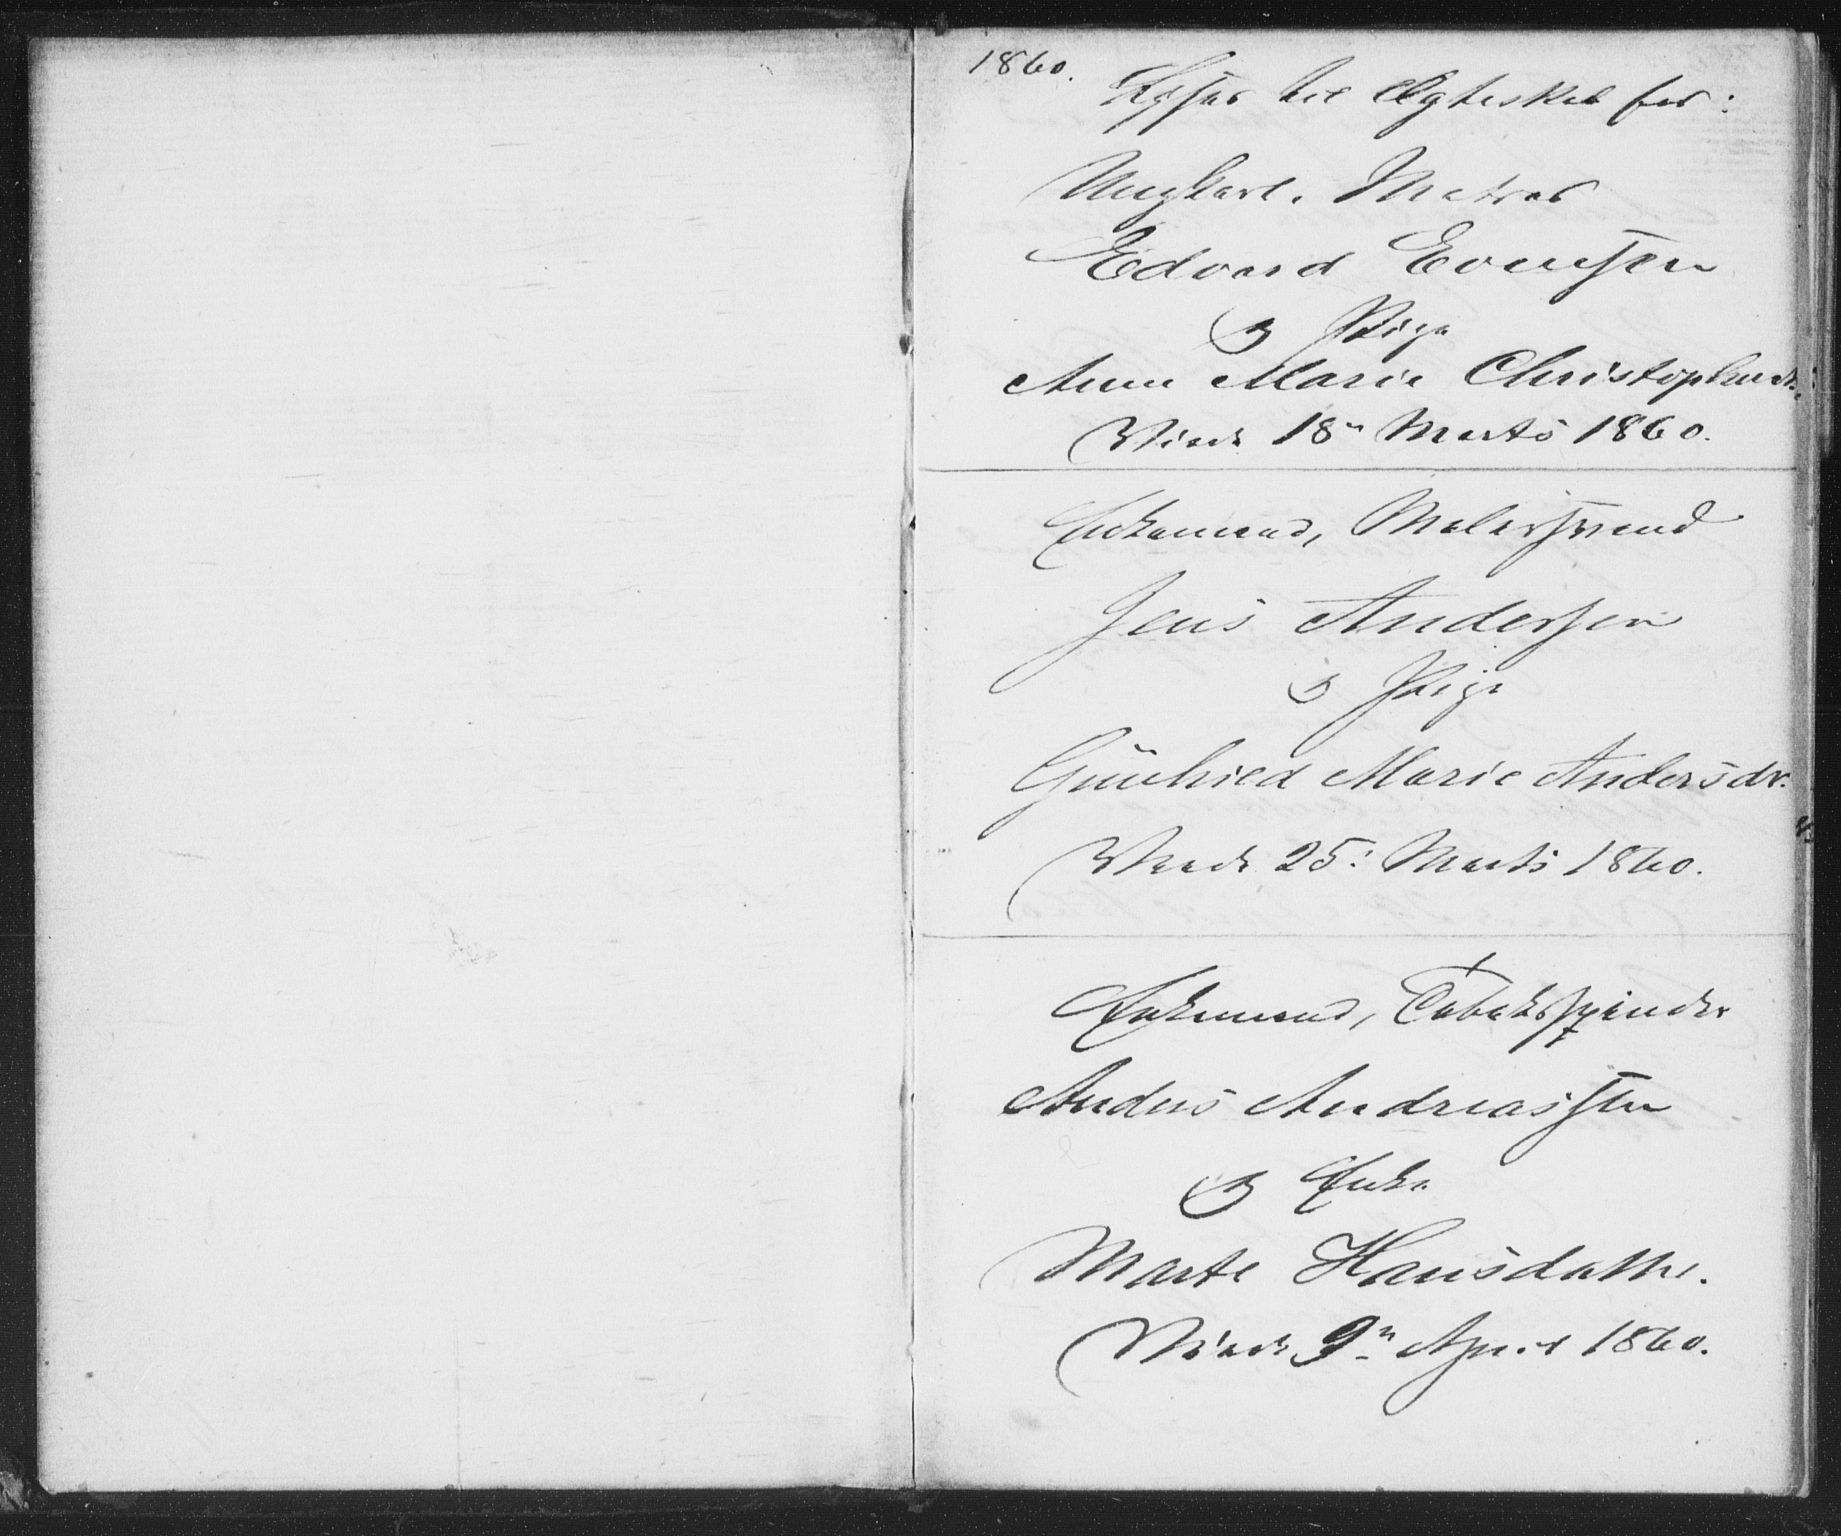 1860.
Lyses til Ægteskab for:
Ungkarl. Matros
Edvard Evensen
og Pige
Anna Marie Christophersdr.
Viede 18de Marts 1860.
Enkemand, Malersvend
Jens Andersen
og Pige
Gunhild Marie Andersdr.
Viede 25: Marts 1860.
Enkemand, Tobaksspinder
Anders Andreassen
og Enke
Marte Hansdatter.
Viede 9n April 1860.